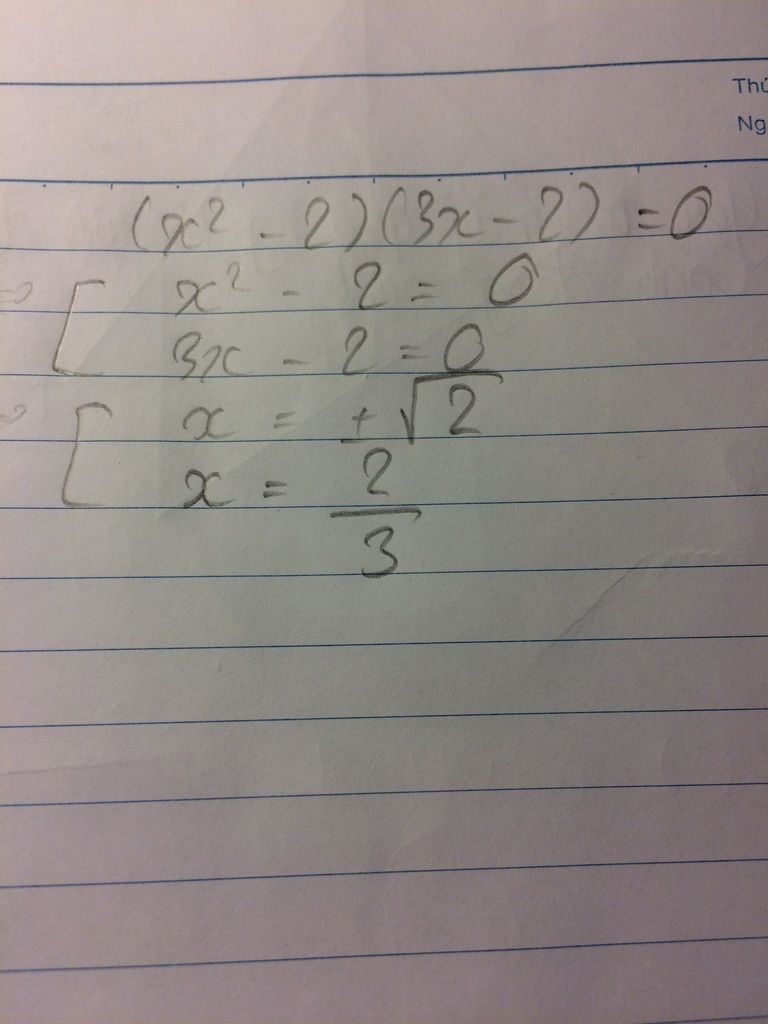 Thứ
Ng
(x² - 2)(3x - 2) = 0
⇒ [ x² - 2 = 0
3x - 2 = 0
⇒ [ x = ±√2
x = 2/3